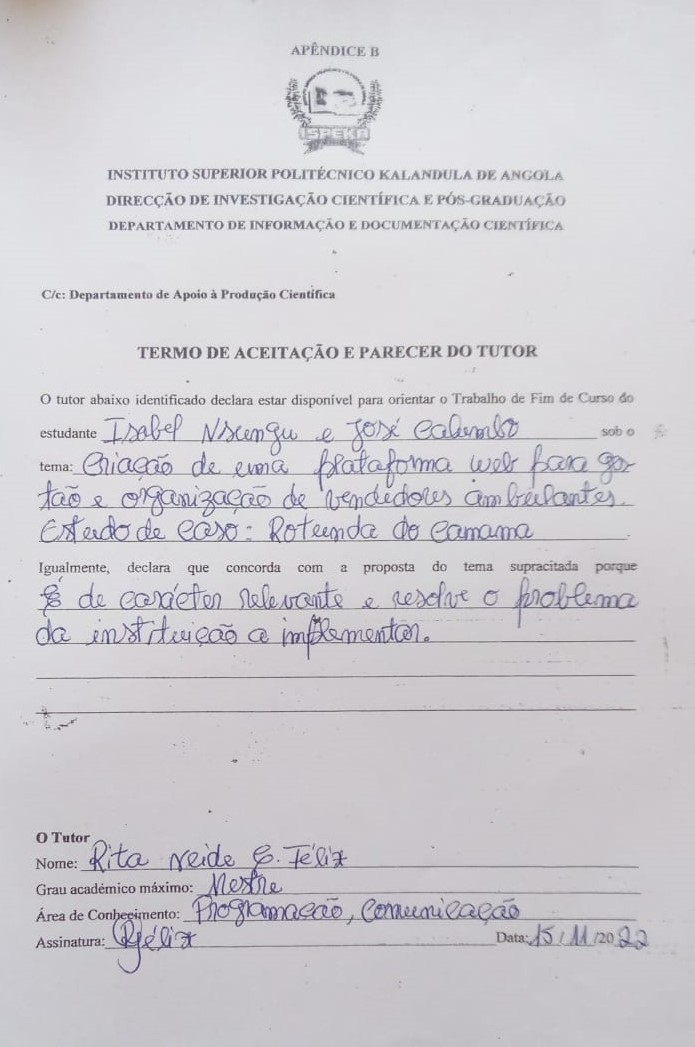 APÊNDICE B
ISPEKA
INSTITUTO SUPERIOR POLITÉCNICO KALANDULA DE ANGOLA
DIRECÇÃO DE INVESTIGAÇÃO CIENTÍFICA E PÓS-GRADUAÇÃO
DEPARTAMENTO DE INFORMAÇÃO E DOCUMENTAÇÃO CIENTÍFICA
C/c: Departamento de Apoio à Produção Científica
TERMO DE ACEITAÇÃO E PARECER DO TUTOR
O tutor abaixo identificado declara estar disponível para orientar o Trabalho de Fim de Curso do
estudante Isabel Nsungu e José Calumbo sob o
tema: Criação de uma plataforma web para ges
tão e organização de vendedores ambulantes.
Estudo de caso: Rotunda do Camama
Igualmente, declara que concorda com a proposta do tema supracitada porque
é de carácter relevante e resolve o problema
da instituição a implementar.
O Tutor
Nome: Rita Neide C. Félix
Grau académico máximo: Mestre
Área de Conhecimento: Programação, Comunicação
Assinatura: RFélix Data: 15/11/2022